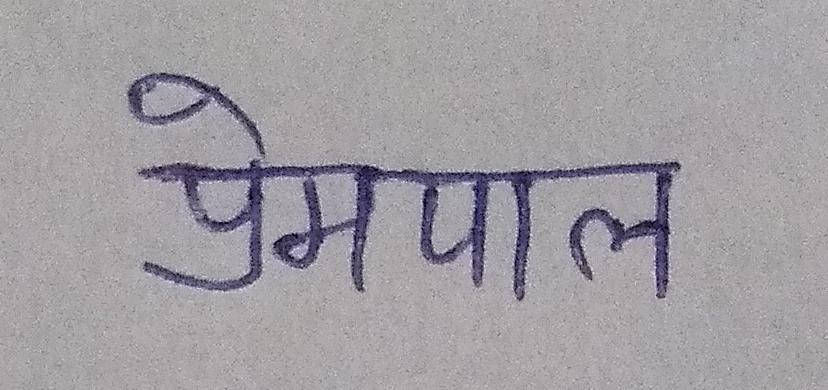 प्रेमपाल